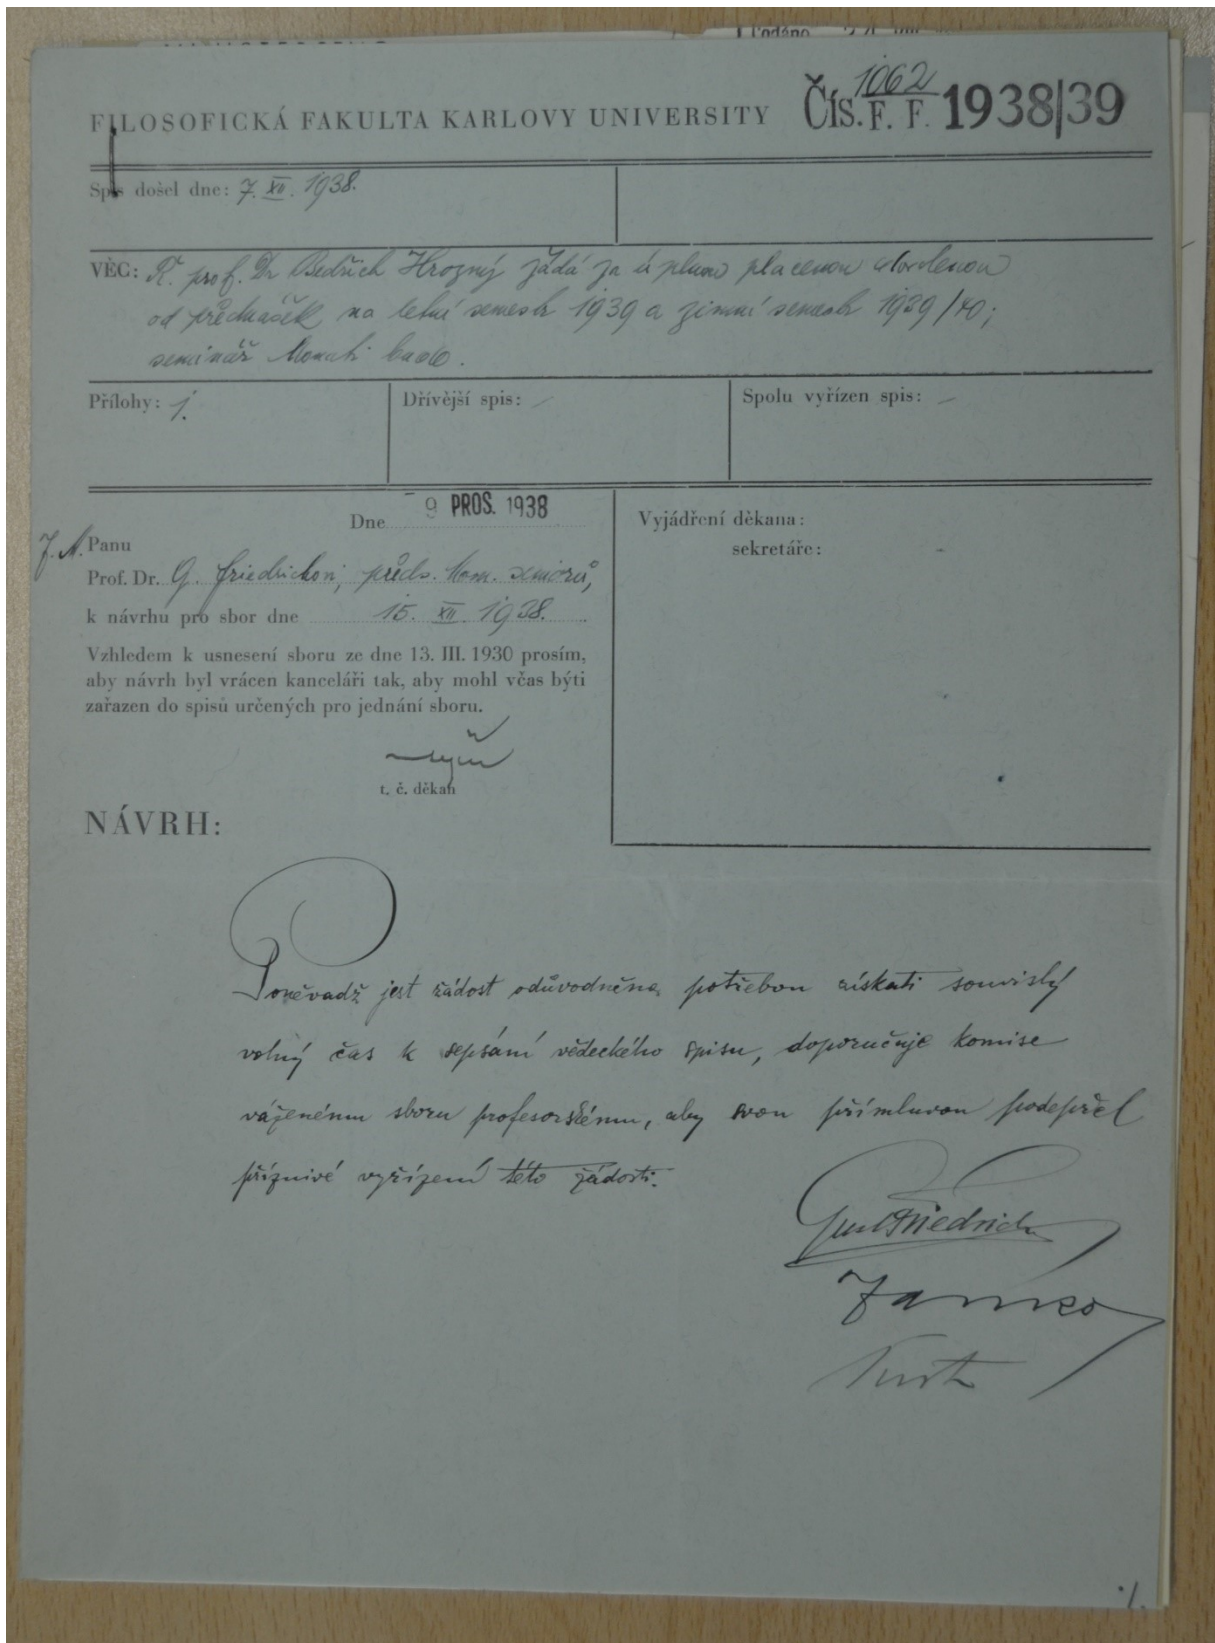 FILOSOFICKÁ FAKULTA KARLOVY UNIVERSITY ČÍS. 1062 F. F. 1938/39
Spis došel dne: 7. XII. 1938.
VĚC: Ř. prof. Dr Bedřich Hrozný žádá za úplnou placenou dovolenou
od přednášek na letní semestr 1939 a zimní semestr 1939/40;
seminář konati bude.
Přílohy: 1. Dřívější spis: Spolu vyřízen spis:
Dne 9 PROS. 1938
Vyjádření děkana:
sekretáře:
Panu
Prof. Dr. G. Friedrichovi, předs. kom. seniorů,
k návrhu pro sbor dne 15. XII. 1938.
Vzhledem k usnesení sboru ze dne 13. III. 1930 prosím,
aby návrh byl vrácen kanceláři tak, aby mohl včas býti
zařazen do spisů určených pro jednání sboru.
t. č. děkan
NÁVRH:
Poněvadž jest žádost odůvodněna potřebou získati souvislý
volný čas k sepsání vědeckého spisu, doporučuje komise
váženému sboru profesorskému, aby svou přímluvou podepřel
příznivé vyřízení této žádosti.
Gust Friedrich
Janko